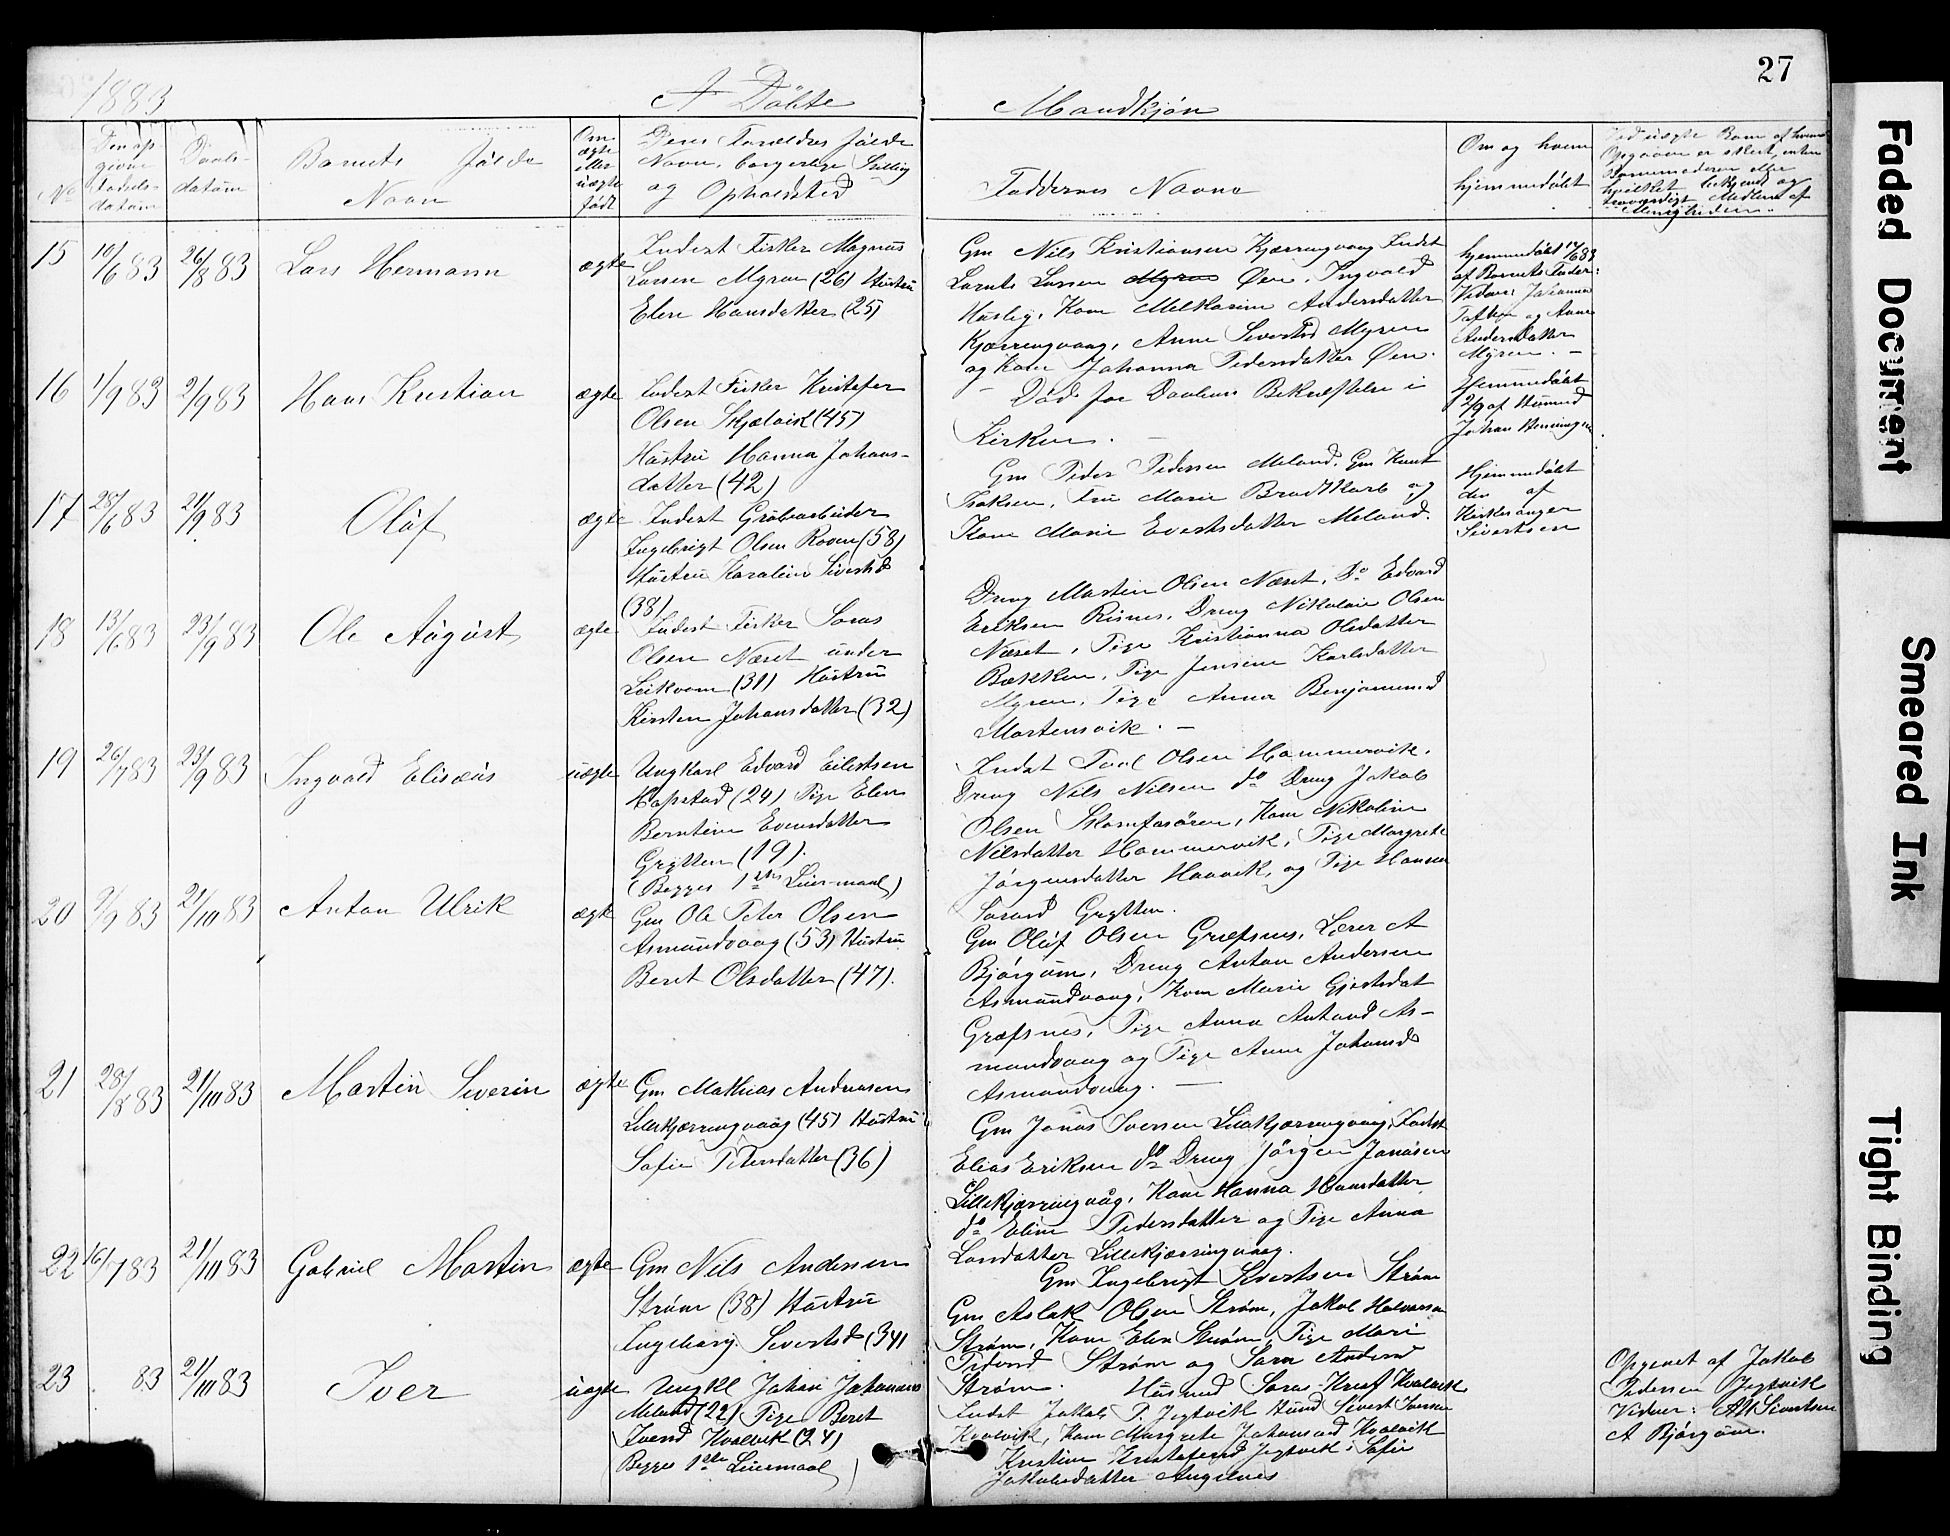 27
1883
A Döbte
Mandkjön
No
Den op-
givne
födsels-
datum
Daabs-
datum
Barnets fulde
Navn
Om
ægte
eller
uægte
født
Deres Forældres fulde
Navn, borgerlige Stilling
og Opholdsted
Faddernes Navne
Om og hvem
hjemmedøbt
Ved uægte Barn af hvem
Opgaven er skeet, enten
Barnemoderen eller
hvilket bekjendt og
troværdigt Medlem af
Menigheden
15
10/6 83
26/8 83
Lars Hermann
ægte
Inderst Fisker Magnus
Larsen Myran (26) Hustru
Elen Hansdatter (25)
Gm Nils Kristiansen Kjærringvaag Inderst
Lornts Larsen Myran Øen, Ingvald
Husby, Kone Melkarine Andersdatter
Kjærringvaag, Anne Sivertsd Myren
og Kone Johanna Pedersdatter Øen.
hjemmedøbt 17/6 83
af Barnets Fader:
Vidner Johanna
Toftten og Anne
Andersdatter
Myren. -
16
1/9 83
2/9 83
Hans Kristian
ægte
Inderst Fisker Kristofer
Olsen Skjælvik (45)
Hustru Hanna Johans-
datter (42)
- Död før Daabens Bekræftelse i
Kirken. -
Hjemmedøbt
2/9 af Husmd
Johan Henningsen
17
28/6 83
2/9 83
Oluf
ægte
Inderst Grubearbeider
Ingebrigt Olsen Roven (58)
Hustru Karoline Sivertsd
(38)
Gm Peder Pedersen Meland. Gm Knut
Isaksen, Fru Marie Brodtkorb og
Kone Marie Evertsdatter Meland.
Hjemmedøbt
den af
Kirkesanger
Sivertsen
18
13/6 83
23/9 83
Ole August
ægte
Inderst Fisker Soras
Olsen Næset under
Leikvam (31) Hustru
Kirsten Johansdatter (32)
Dreng Martin Olsen Næset, do Edvard
Eriksen Risnes, Dreng Nikolai Olsen
Næset, Pige Kristianna Olsdatter
Bækken, Pige Jensine Karlsdatter
Myren, Pige Anna Benjaminsd
Mortensvik. -
19
26/7 83
23/9 83
Ingvald Elisæus
uægte
Ungkarl Edvard Eilertsen
Hopstad (24) Pige Elen
Berntine Evensdatter
Grytten (19).
(Begges 1ste Leiermaal)
Inderst Poul Olsen Hammervik,
Dreng Nils Nilsen do Dreng Jakob
Olsen Skomfarören, Kone Nikoline
Nilsdatter Hammervik, Pige Margrete
Jörgensdatter Haavik, og Pige Hanna
Sorasd Grytten.
20
2/9 83
21/10 83
Anton Ulrik
ægte
Gm Ole Peter Olsen
Asmundvaag (53) Hustru
Beret Olsdatter (47).
Gm Oluf Olsen Græfsnes, Lærer A
Bjørgum, Dreng Anton Andersen
Asmundvaag, Kone Marie Gjertsdat
Græfsnes, Pige Anna Antonsd As-
mundvaag og Pige Anne Johansd
Asmundvaag. -
21
28/8 83
21/10 83
Martin Severin
ægte
Gm Mathias Andreasen
Lillekjærringvaag (45) Hustru
Sofie Petersdatter (36)
Gm Jonas Iversen Lillekjærringvaag, Inderst
Elias Eriksen do Dreng Jörgen Jonasen
Lillekjærringvaag, Kone Hanna Hansdatter
do Eline Pedersdatter og Pige Anna
Larsdatter Lillekjærringvaag.
22
16/7 83
21/10 83
Gabriel Martin
ægte
Gm Nils Andersen
Strøm (38) Hustru
Ingeborg Sivertsd (34)
Gm Ingebrigt Sivertsen Strøm
Gm Aslak Olsen Strøm, Jakob Halvorsen
Strøm, Kone Elen Strøm, Pige Mari
Pedersd Strøm og Sara Andersd
Strøm.
23
83
21/10 83
Iver
uægte
Ungkl Johan Johansen
Meland (22) Pige Beret
Iversd Kvalvik (24)
Begges 1ste Leiermaal)
Husmd Soras Knuf Kvalvik
Inderst Jakob P. Jegtvik Husmd Sivert Iversen
Kvalvik, Kone Margrete Johansd Kvalvik
Kristine Kristofersd Jegtvik, Sofie
Jakobsdatter Angelnes
Opgivet af Jakob
Pedersen Jegtvik
Vidner: AH Sivertsen
A Bjørgum.
Faded Document
Smeared Ink
Tight Binding